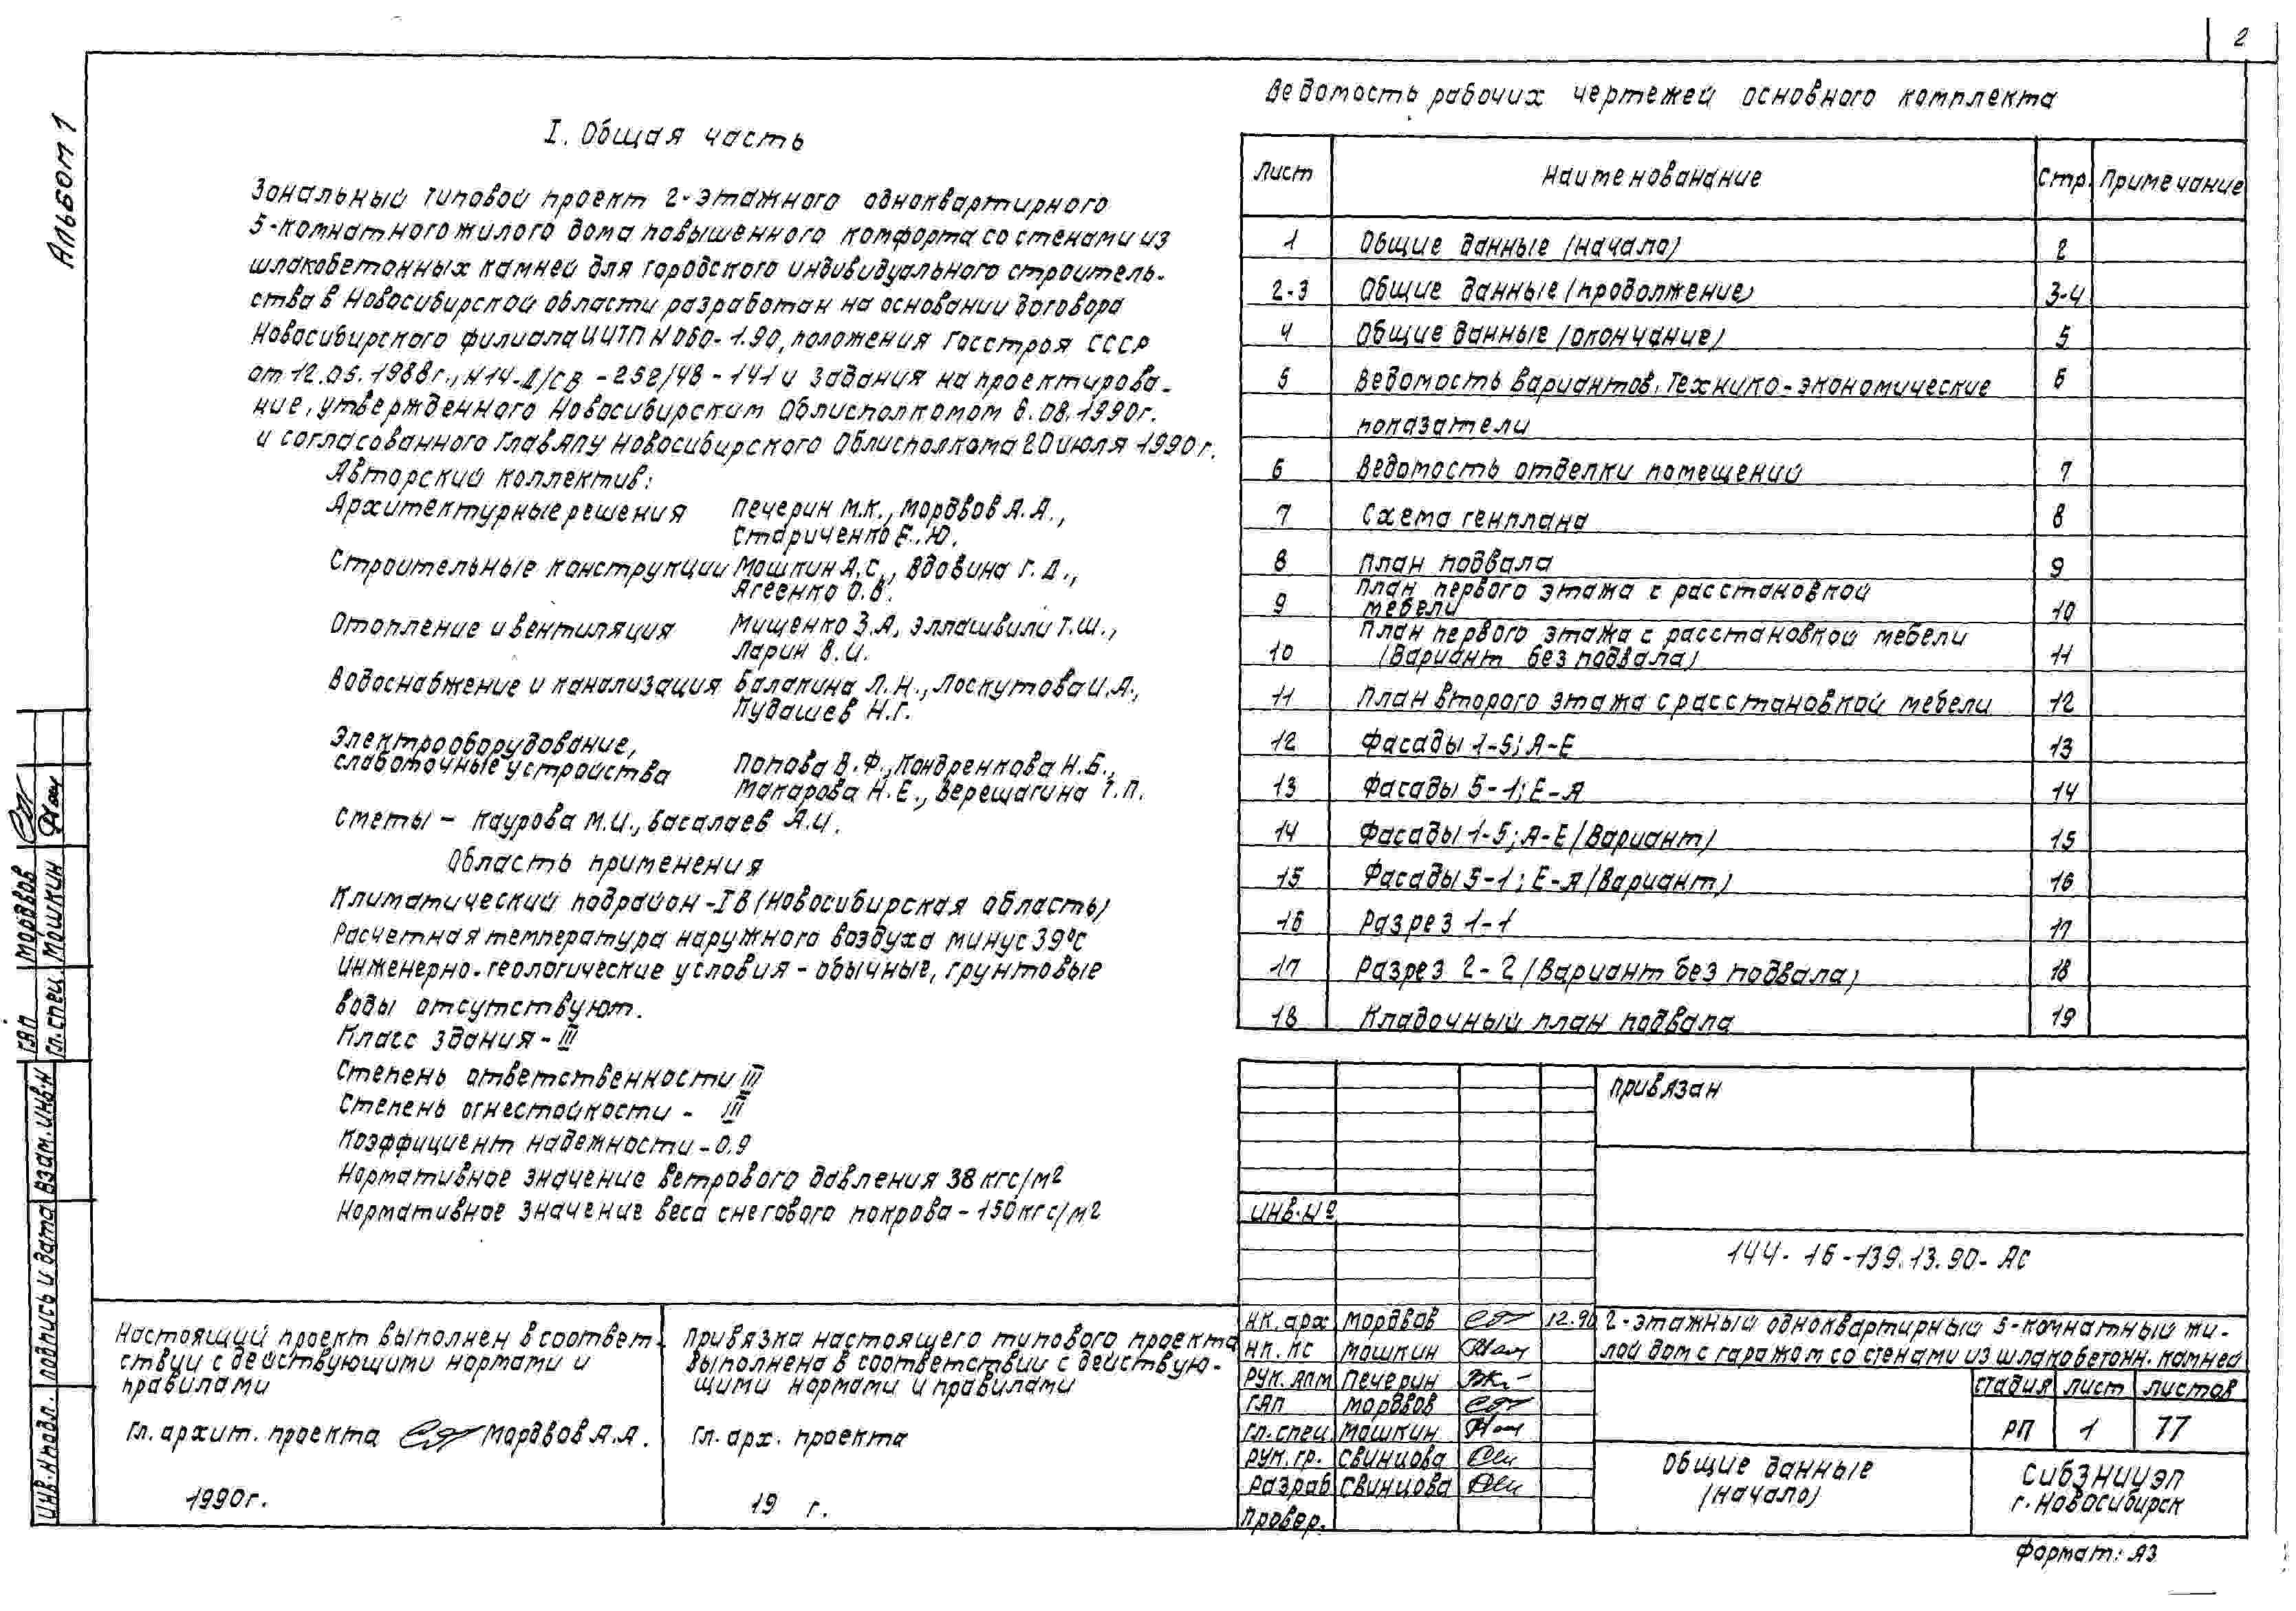 2
Альбом 1
I. Общая часть
Зональный типовой проект 2-этажного одноквартирного
5-комнатного жилого дома повышенного комфорта со стенами из
шлакобетонных камней для городского индивидуального строитель-
ства в Новосибирской области разработан на основании договора
Новосибирского филиала ЦИТП N 060-1.90, положения Госстроя СССР
от 12.05.1988г., N14-Д/СВ-252/48-141 и задания на проектирова-
ние, утвержденного Новосибирским Облисполкомом 6.08.1990г.
и согласованного ГлавАПУ Новосибирского Облисполкома 20 июля 1990г.
Авторский коллектив:
Архитектурные решения Печерин М.К., Мордвов А.А.,
Стариченко Е.Ю.
Строительные конструкции Мошкин А.С., Вдовина Г.Д.,
Агеенко О.В.
Отопление и вентиляция Мищенко З.А, Эллашвили Т.Ш.,
Ларин В.И.
Водоснабжение и канализация Балакина Л.Н., Лоскутова И.А.,
Пудашев Н.Г.
Электрооборудование,
слаботочные устройства Попова В.Ф., Кондренкова Н.Б.,
Макарова Н.Е., Верещагина Т.П.
Сметы - Каурова М.И., Басалаев А.И.
Область применения
Климатический подрайон - IВ (Новосибирская область)
Расчетная температура наружного воздуха минус 39°С
Инженерно-геологические условия - обычные, грунтовые
воды отсутствуют.
Класс здания - III
Степень ответственности III
Степень огнестойкости - III
Коэффициент надежности - 0,9
Нормативное значение ветрового давления 38 кгс/м2
Нормативное значение веса снегового покрова - 150 кгс/м2
Настоящий проект выполнен в соответ-
ствии с действующими нормами и
правилами
Гл. архит. проекта Мордвов А.А.
1990г.
Привязка настоящего типового проекта
выполнена в соответствии с действую-
щими нормами и правилами
Гл. арх. проекта
19 г.
Ведомость рабочих чертежей основного комплекта
Лист Наименованание Стр. Примечание
1 Общие данные (начало) 2
2-3 Общие данные (продолжение) 3-4
4 Общие данные (окончание) 5
5 Ведомость вариантов. Технико-экономические 6
показатели
6 Ведомость отделки помещений 7
7 Схема генплана 8
8 План подвала 9
9 План первого этажа с расстановкой
мебели 10
10 План первого этажа с расстановкой мебели
(Вариант без подвала) 11
11 План второго этажа с расстановкой мебели 12
12 Фасады 1-5; А-Е 13
13 Фасады 5-1; Е-А 14
14 Фасады 1-5; А-Е (Вариант) 15
15 Фасады 5-1; Е-А (Вариант) 16
16 Разрез 1-1 17
17 Разрез 2-2 (Вариант без подвала) 18
18 Кладочный план подвала 19
Привязан
Инв. №
144-16-139.13.90-АС
НК. арх Мордвов 12.90
НК. КС Мошкин
Рук. АПМ Печерин
ГАП Мордвов
Гл. спец. Мошкин
Рук. гр. Свинцова
Разраб Свинцова
Провер.
2-этажный одноквартирный 5-комнатный жи-
лой дом с гаражом со стенами из шлакобетонн. камней
Стадия Лист Листов
РП 1 77
Общие данные
(начало)
СибЗНИИЭП
г. Новосибирск
Формат: А3
ГАП Мордвов
Гл. спец. Мошкин
Инв. N подл. Подпись и дата Взам. инв. N